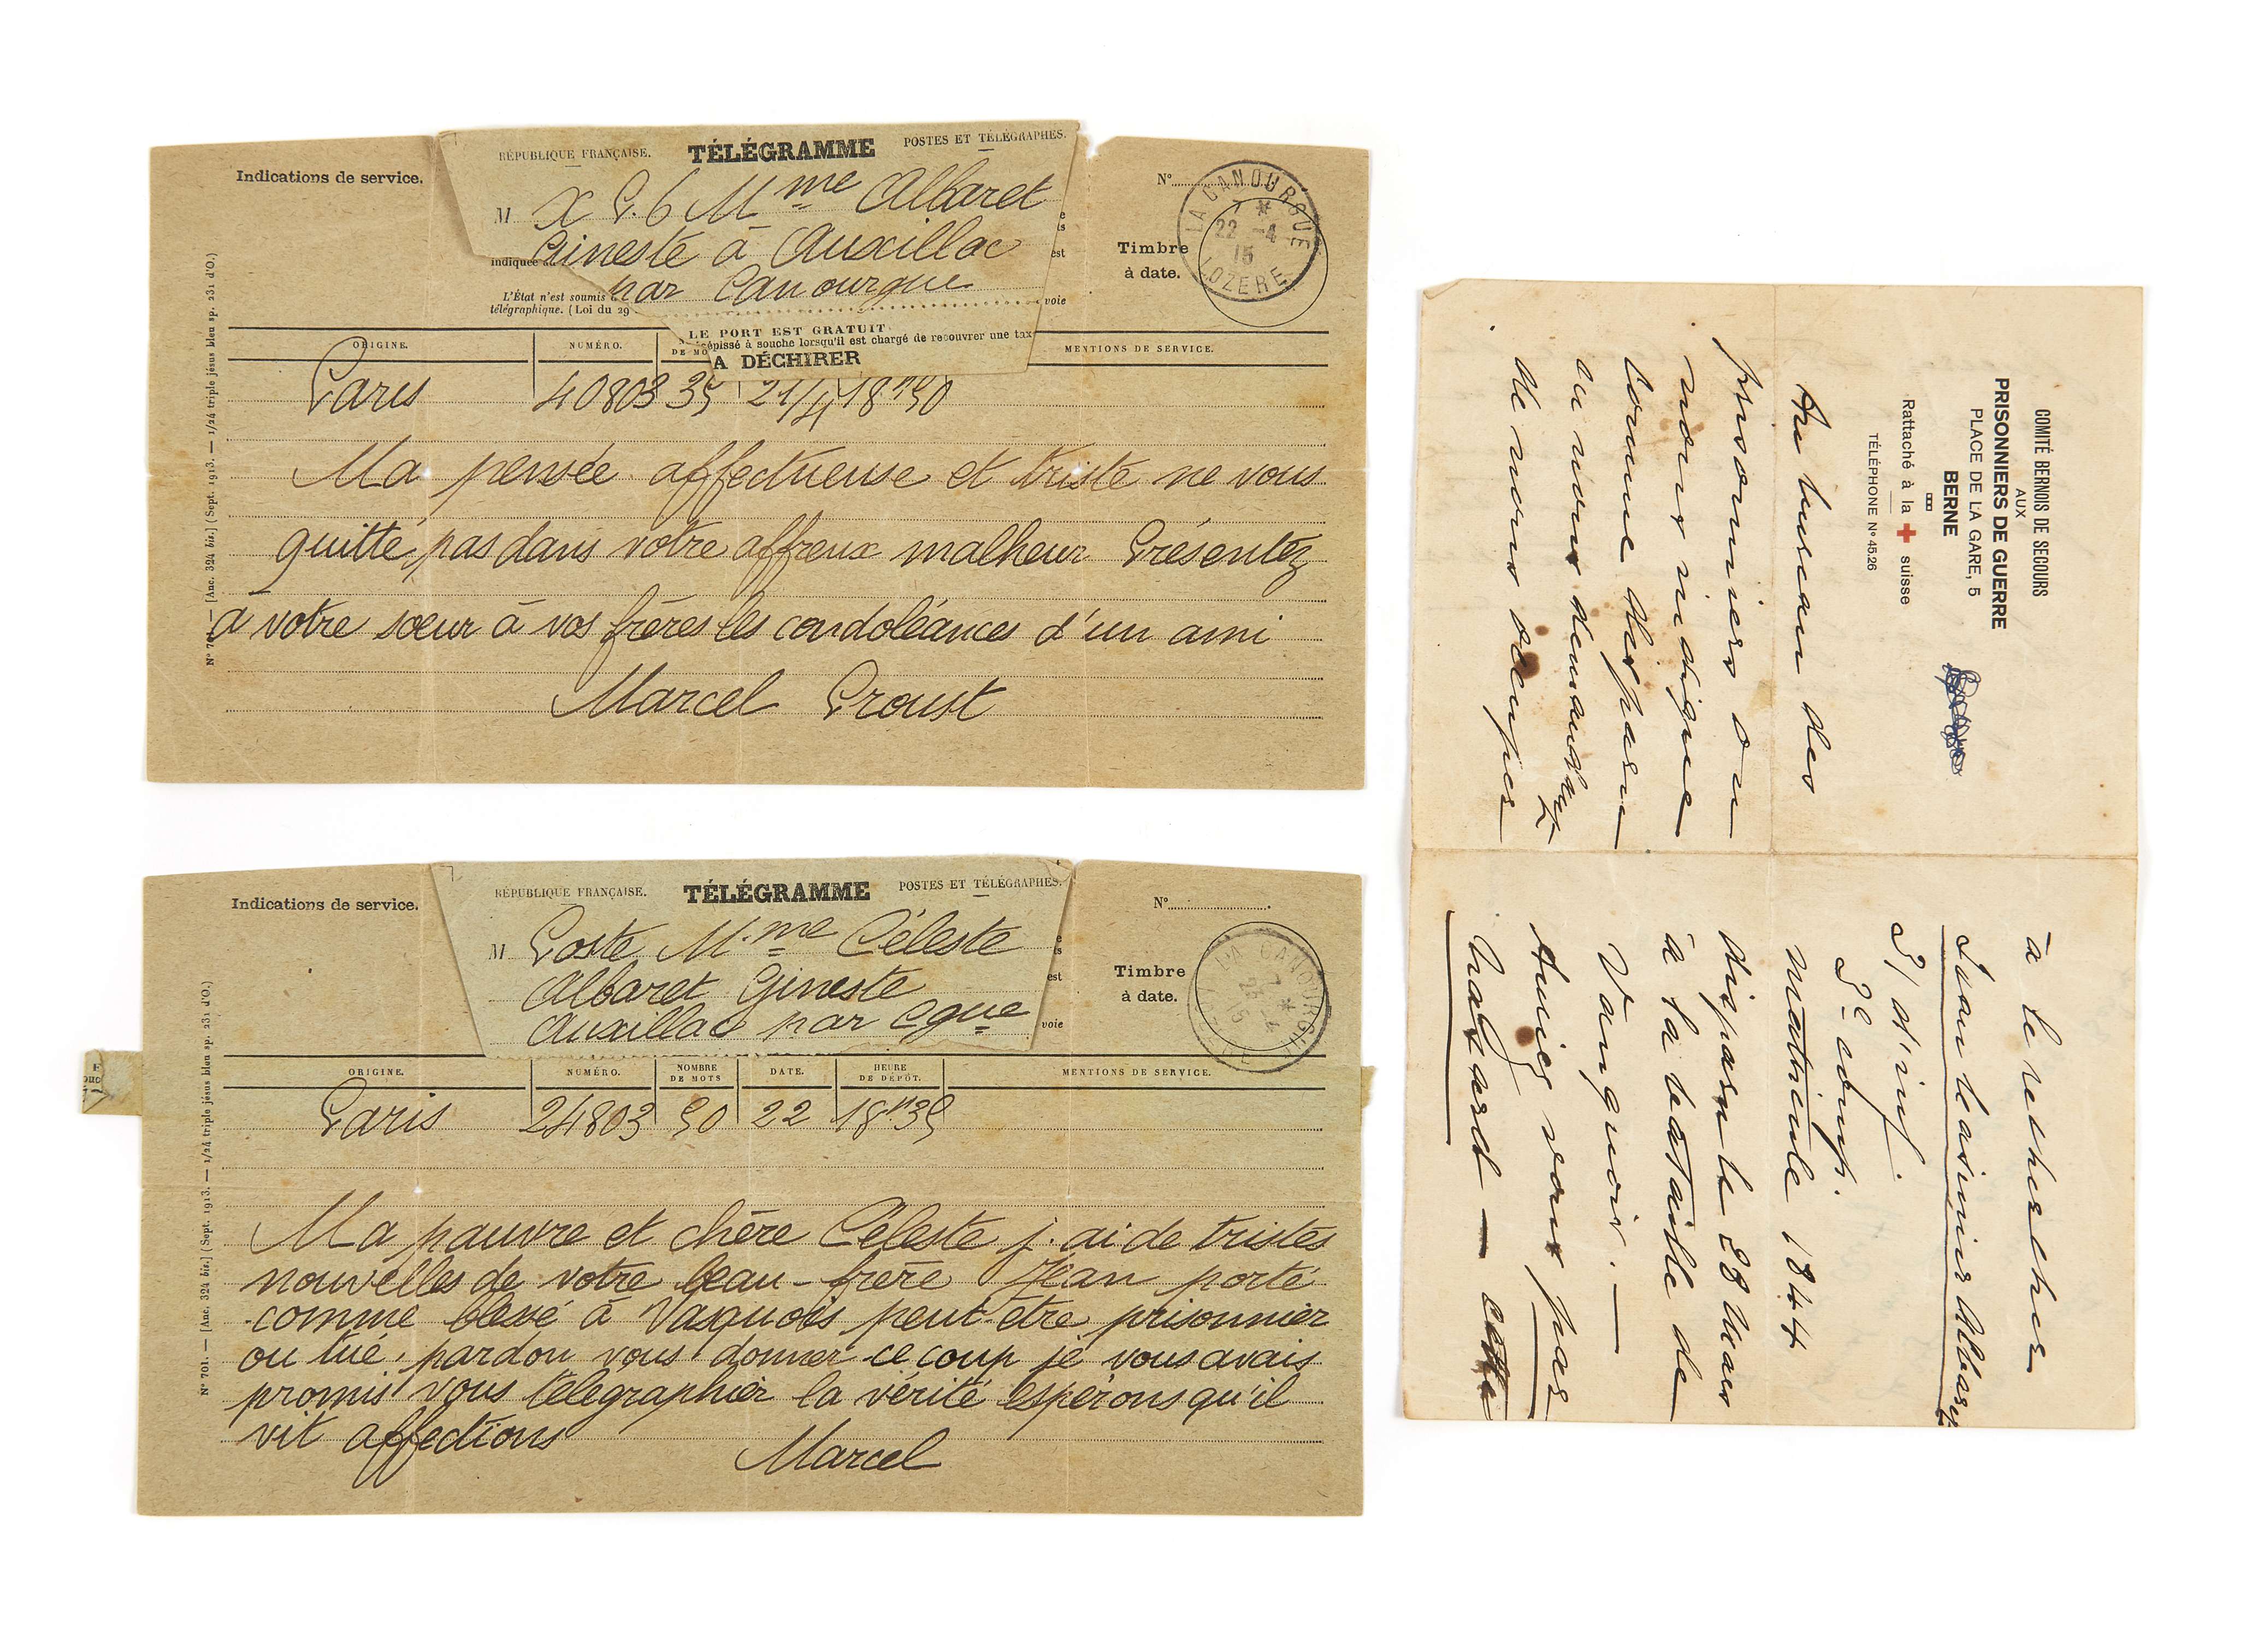 Indications de service.
RÉPUBLIQUE FRANÇAISE. TÉLÉGRAMME POSTES ET TÉLÉGRAPHES.
M x P. 6 Mme Albaret
Gineste à Auxillac
indiquée
par Canourgue
L'État n'est soumis
télégraphique. (Loi du 29
voie
LE PORT EST GRATUIT
épissé à souche lorsqu'il est chargé de recouvrer une tax
A DÉCHIRER
N°
Timbre
à date.
LA CANOURGUE
22 -4
15
LOZERE
ORIGINE. NUMÉRO. DE MO MENTIONS DE SERVICE.
Paris 40803 35 21/4 18h50
Ma pensée affectueuse et triste ne vous
quitte pas dans votre affreux malheur Présentez
à votre soeur à vos frères les condoléances d'un ami
Marcel Proust
N° 701. — [Anc. 324 bis.] (Sept. 1913. — 1/24 triple jésus bleu sp. 231 d'O.)
Indications de service.
RÉPUBLIQUE FRANÇAISE. TÉLÉGRAMME POSTES ET TÉLÉGRAPHES.
M Poste M.me Céleste
Albaret Gineste
Auxillac par Cgue
voie
N°
Timbre
à date.
LA CANOURGUE
LOZERE
ORIGINE. NUMÉRO. NOMBRE DE MOTS DATE. HEURE DE DÉPÔT. MENTIONS DE SERVICE.
Paris 24803 50 22 18h35
Ma pauvre et chère Céleste j'ai de tristes
nouvelles de votre beau-frère Jean porté
comme blessé à Vasquois peut-être prisonnier
ou tué, pardon vous donner ce coup je vous avais
promis vous télégraphier la vérité espérons qu'il
vit affections
Marcel
N° 701. — [Anc. 324 bis.] (Sept. 1913. — 1/24 triple jésus bleu sp. 231 d'O.)
COMITÉ BERNOIS DE SECOURS
AUX
PRISONNIERS DE GUERRE
PLACE DE LA GARE, 5
BERNE
Rattaché à la suisse
TÉLÉPHONE N° 45.26
Au bureau des
prisonniers on
nous indique
comme disparu
et nous demande
de nous occuper
à rechercher
Jean Casimir Albaret
31 d'inf.
3e comp.
matricule 1844
disparu le 28 Mars
à la bataille de
Vauquois. —
Auriez vous par
hasard —